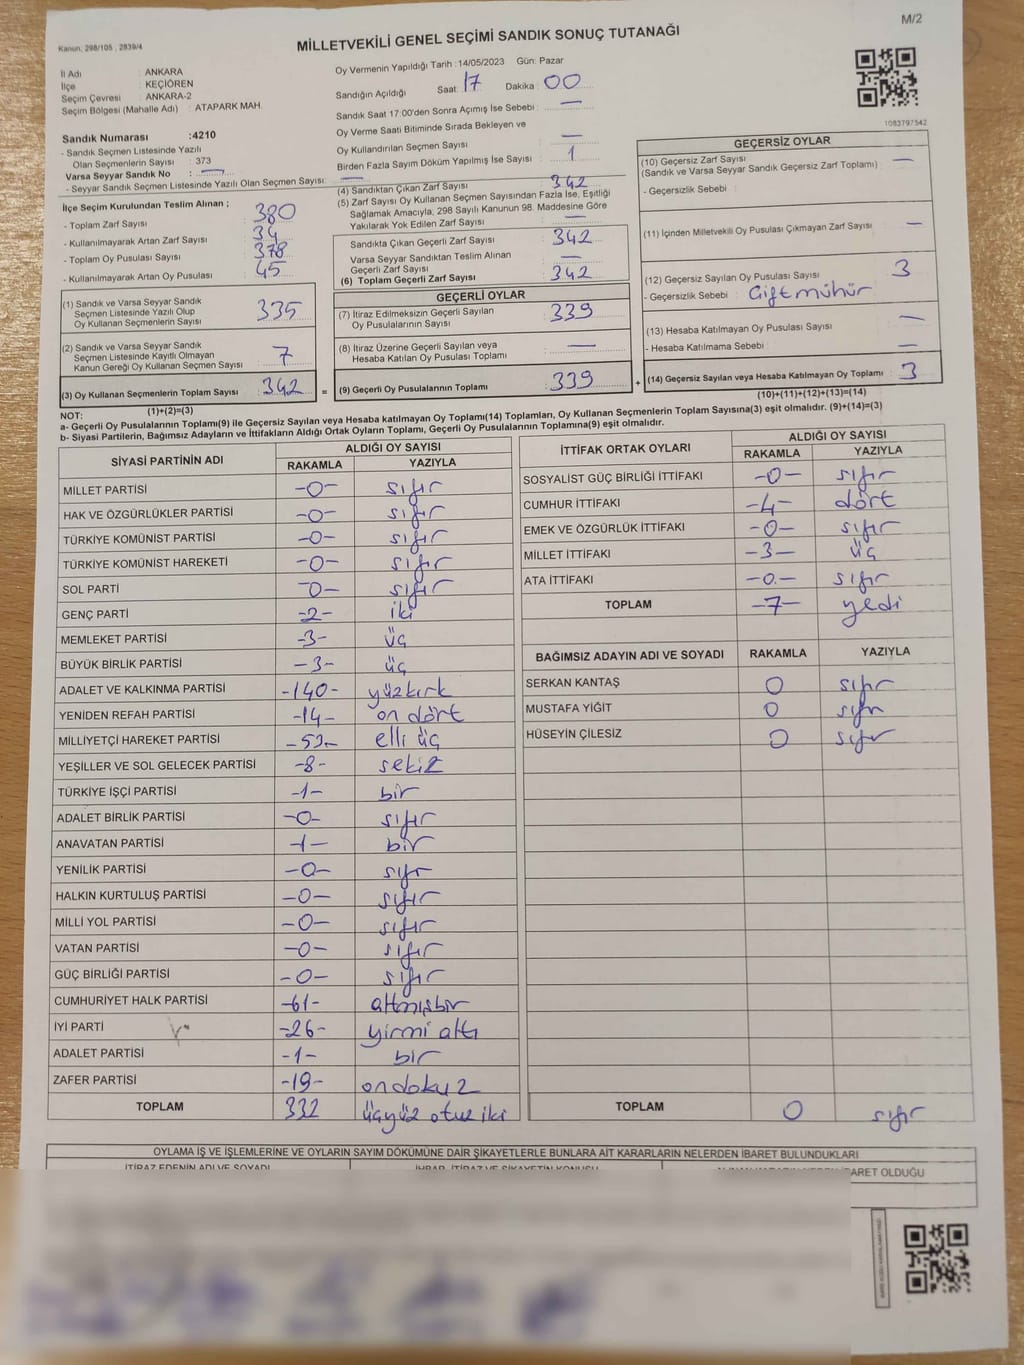 M/2
Kanun: 298/105 , 2839/4
MİLLETVEKİLİ GENEL SEÇİMİ SANDIK SONUÇ TUTANAĞI
İl Adı : ANKARA
İlçe : KEÇİÖREN
Seçim Çevresi : ANKARA-2
Seçim Bölgesi (Mahalle Adı) : ATAPARK MAH.
Sandık Numarası :4210
- Sandık Seçmen Listesinde Yazılı
Olan Seçmenlerin Sayısı : 373
Varsa Seyyar Sandık No : —
- Seyyar Sandık Seçmen Listesinde Yazılı Olan Seçmen Sayısı: —
Oy Vermenin Yapıldığı Tarih :14/05/2023 Gün: Pazar
Sandığın Açıldığı Saat : 17 Dakika : 00
Sandık Saat 17:00'den Sonra Açımış İse Sebebi : —
Oy Verme Saati Bitiminde Sırada Bekleyen ve
Oy Kullandırılan Seçmen Sayısı : —
Birden Fazla Sayım Döküm Yapılmış İse Sayısı : 1
1083797542
İlçe Seçim Kurulundan Teslim Alınan ;
- Toplam Zarf Sayısı : 380
- Kullanılmayarak Artan Zarf Sayısı : 34
- Toplam Oy Pusulası Sayısı : 378
- Kullanılmayarak Artan Oy Pusulası : 45
(1) Sandık ve Varsa Seyyar Sandık
Seçmen Listesinde Yazılı Olup
Oy Kullanan Seçmenlerin Sayısı : 335
(2) Sandık ve Varsa Seyyar Sandık
Seçmen Listesinde Kayıtlı Olmayan
Kanun Gereği Oy Kullanan Seçmen Sayısı : 7
(3) Oy Kullanan Seçmenlerin Toplam Sayısı : 342
(1)+(2)=(3)
(4) Sandıktan Çıkan Zarf Sayısı : 342
(5) Zarf Sayısı Oy Kullanan Seçmen Sayısından Fazla İse, Eşitliği
Sağlamak Amacıyla, 298 Sayılı Kanunun 98. Maddesine Göre
Yakılarak Yok Edilen Zarf Sayısı : —
Sandıkta Çıkan Geçerli Zarf Sayısı : 342
Varsa Seyyar Sandıktan Teslim Alınan
Geçerli Zarf Sayısı : —
(6) Toplam Geçerli Zarf Sayısı : 342
GEÇERLİ OYLAR
(7) İtiraz Edilmeksizin Geçerli Sayılan
Oy Pusulalarının Sayısı : 339
(8) İtiraz Üzerine Geçerli Sayılan veya
Hesaba Katılan Oy Pusulası Toplamı : —
= (9) Geçerli Oy Pusulalarının Toplamı : 339 +
GEÇERSİZ OYLAR
(10) Geçersiz Zarf Sayısı : —
(Sandık ve Varsa Seyyar Sandık Geçersiz Zarf Toplamı)
- Geçersizlik Sebebi :
(11) İçinden Milletvekili Oy Pusulası Çıkmayan Zarf Sayısı : —
(12) Geçersiz Sayılan Oy Pusulası Sayısı : 3
- Geçersizlik Sebebi : Çift mühür
(13) Hesaba Katılmayan Oy Pusulası Sayısı : —
- Hesaba Katılmama Sebebi : —
(14) Geçersiz Sayılan veya Hesaba Katılmayan Oy Toplamı : 3
(10)+(11)+(12)+(13)=(14)
NOT:
a- Geçerli Oy Pusulalarının Toplamı(9) ile Geçersiz Sayılan veya Hesaba katılmayan Oy Toplamı(14) Toplamları, Oy Kullanan Seçmenlerin Toplam Sayısına(3) eşit olmalıdır. (9)+(14)=(3)
b- Siyasi Partilerin, Bağımsız Adayların ve İttifakların Aldığı Ortak Oyların Toplamı, Geçerli Oy Pusulalarının Toplamına(9) eşit olmalıdır.
SİYASİ PARTİNİN ADI ALDIĞI OY SAYISI
RAKAMLA YAZIYLA
MİLLET PARTİSİ -0- sıfır
HAK VE ÖZGÜRLÜKLER PARTİSİ -0- sıfır
TÜRKİYE KOMÜNİST PARTİSİ -0- sıfır
TÜRKİYE KOMÜNİST HAREKETİ -0- sıfır
SOL PARTİ -0- sıfır
GENÇ PARTİ -2- iki
MEMLEKET PARTİSİ -3- üç
BÜYÜK BİRLİK PARTİSİ -3- üç
ADALET VE KALKINMA PARTİSİ -140- yüzkırk
YENİDEN REFAH PARTİSİ -14- on dört
MİLLİYETÇİ HAREKET PARTİSİ -53- elli üç
YEŞİLLER VE SOL GELECEK PARTİSİ -8- sekiz
TÜRKİYE İŞÇİ PARTİSİ -1- bir
ADALET BİRLİK PARTİSİ -0- sıfır
ANAVATAN PARTİSİ -1- bir
YENİLİK PARTİSİ -0- sıfır
HALKIN KURTULUŞ PARTİSİ -0- sıfır
MİLLİ YOL PARTİSİ -0- sıfır
VATAN PARTİSİ -0- sıfır
GÜÇ BİRLİĞİ PARTİSİ -0- sıfır
CUMHURİYET HALK PARTİSİ -61- altmışbir
İYİ PARTİ -26- yirmi altı
ADALET PARTİSİ -1- bir
ZAFER PARTİSİ -19- ondokuz
TOPLAM 332 üçyüz otuz iki
İTTİFAK ORTAK OYLARI ALDIĞI OY SAYISI
RAKAMLA YAZIYLA
SOSYALİST GÜÇ BİRLİĞİ İTTİFAKI -0- sıfır
CUMHUR İTTİFAKI -4- dört
EMEK VE ÖZGÜRLÜK İTTİFAKI -0- sıfır
MİLLET İTTİFAKI -3- üç
ATA İTTİFAKI -0- sıfır
TOPLAM -7- yedi
BAĞIMSIZ ADAYIN ADI VE SOYADI RAKAMLA YAZIYLA
SERKAN KANTAŞ 0 sıfır
MUSTAFA YİĞİT 0 sıfır
HÜSEYİN ÇİLESİZ 0 sıfır
TOPLAM 0 sıfır
OYLAMA İŞ VE İŞLEMLERİNE VE OYLARIN SAYIM DÖKÜMÜNE DAİR ŞİKAYETLERLE BUNLARA AİT KARARLARIN NELERDEN İBARET BULUNDUKLARI
İTİRAZ EDENİN ADI VE SOYADI
İHBAR, İTİRAZ VE ŞİKAYETİN KONUSU
İBARET OLDUĞU